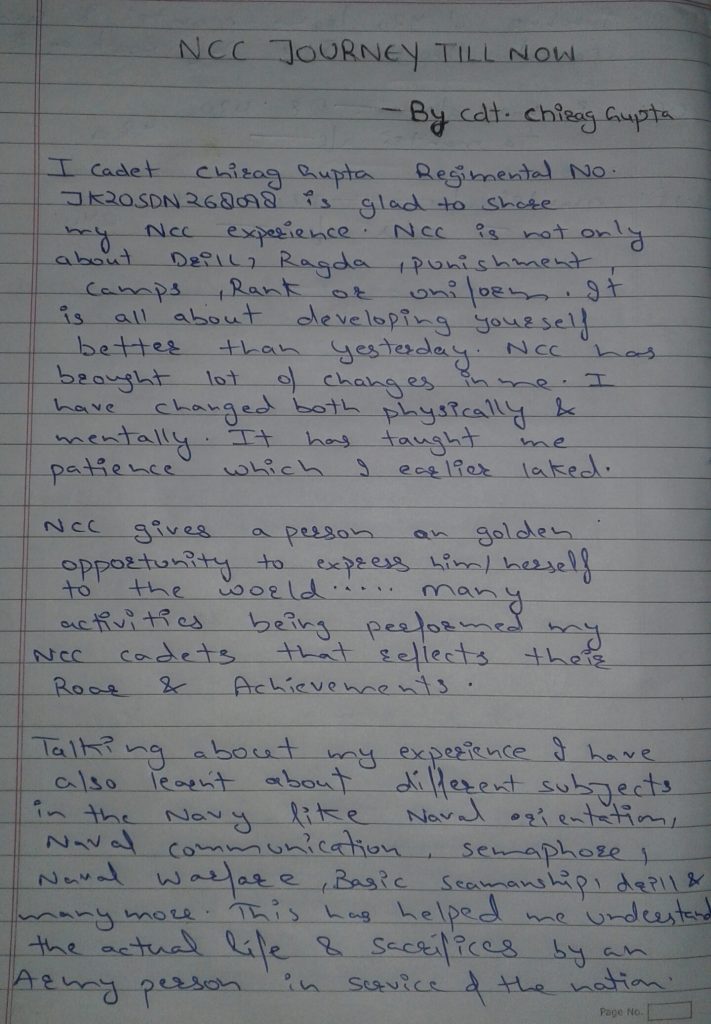 NCC JOURNEY TILL NOW
- By Cdt. Chirag Gupta
I Cadet Chirag Gupta Regimental No.
JK20SDN268098 is glad to share
my NCC experience. NCC is not only
about Drill, Ragda, punishment,
Camps, Rank or uniform. It
is all about developing yourself
better than yesterday. NCC has
brought lot of changes in me. I
have changed both physically &
mentally. It has taught me
patience which I earlier laked.
NCC gives a person an golden
opportunity to express him/herself
to the world..... many
activities being performed my
NCC cadets that reflects their
Roar & Achievements.
Talking about my experience I have
also learn't about different subjects
in the Navy like Naval orientation,
Naval communication, semaphore,
Naval Warfare, Basic Seamanship, drill &
many more. This has helped me understand
the actual life & sacrifices by an
Army person in service of the nation.
Page No.